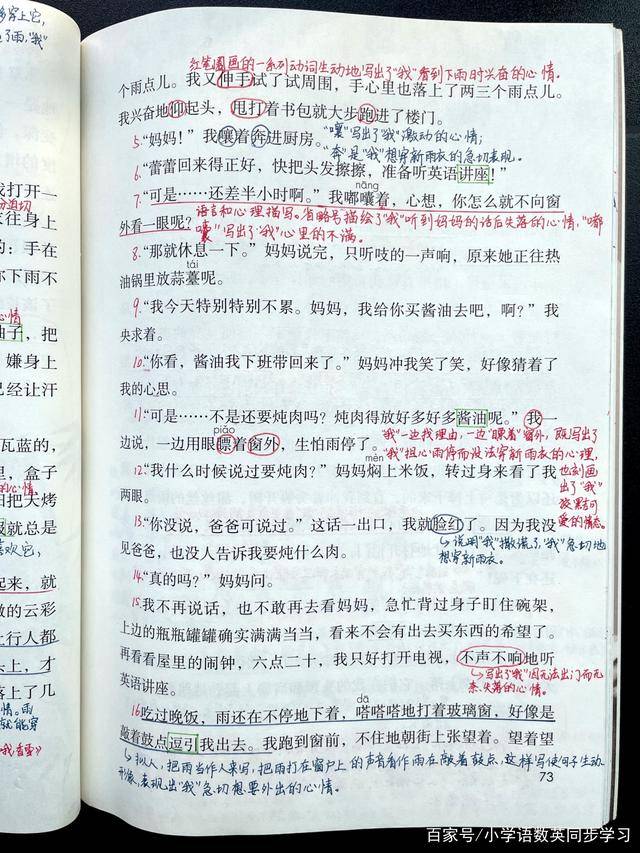 多穿上它，
了雨，"我"
我打开一
分迫切
往身上
的：手在
下雨不
心情
油子，把
嫌身上
已经让汗
瓦蓝的，
里，盒子
的心情。
把天烤
就总是
喜欢它，
起来，就
的云彩
上行人都
上，才
落上了几
心情。雨
就能穿
红笔圈画的一系列动词生动地写出了"我"看到下雨时兴奋的心情。
个雨点儿。我又伸手试了试周围，手心里也落上了两三个雨点儿。
我兴奋地仰起头，甩打着书包就大步跑进了楼门。
5."妈妈！"我嚷着奔进厨房。
"嚷"写出了"我"激动的心情；
"奔"是"我"想穿新雨衣的急切表现。
6."蕾蕾回来得正好，快把头发擦擦，准备听英语讲座！"
nāng
7."可是……还差半小时啊。"我嘟囔着，心想，你怎么就不向窗
外看一眼呢？
语言和心理描写。省略号描绘了"我"听到妈妈的话后失落的心情，"嘟
囔"写出了"我"心里的不满。
8."那就休息一下。"妈妈说完，只听吱的一声响，原来她正往热
tái
油锅里放蒜薹呢。
9."我今天特别特别不累。妈妈，我给你买酱油去吧，啊？"我
央求着。
10."你看，酱油我下班带回来了。"妈妈冲我笑了笑，好像猜着了
我的心思。
11."可是……不是还要炖肉吗？炖肉得放好多好多酱油呢。"我一
piǎo
边说，一边用眼瞟着窗外，生怕雨停了。
"我"一边找理由，一边"瞟着"窗外，既写出了
"我"担心雨停而没法穿新雨衣的心理，
也刻画
出了"我"
爱的情态。
mèn
12."我什么时候说过要炖肉？"妈妈焖上米饭，转过身来看了我
两眼。
13."你没说，爸爸可说过。"这话一出口，我就脸红了。因为我没
见爸爸，也没人告诉我要炖什么肉。
说明"我"撒谎了，"我"急切地
想穿新雨衣。
14."真的吗？"妈妈问。
15.我不再说话，也不敢再去看妈妈，急忙背过身子盯住碗架，
上边的瓶瓶罐罐确实满满当当，看来不会有出去买东西的希望了。
再看看屋里的闹钟，六点二十，我只好打开电视，不声不响地听
英语讲座。
写出了"我"因无法出门而无
奈、失落的心情。
dā
16.吃过晚饭，雨还在不停地下着，嗒嗒嗒地打着玻璃窗，好像是
敲着鼓点逗引我出去。我跑到窗前，不住地朝街上张望着。望着望
拟人，把雨当作人来写，把雨打在窗户上的声音看作雨在敲着鼓点，这样写使句子生动
形象，表现出"我"急切想要外出的心情。
73
百家号/小学语数英同步学习